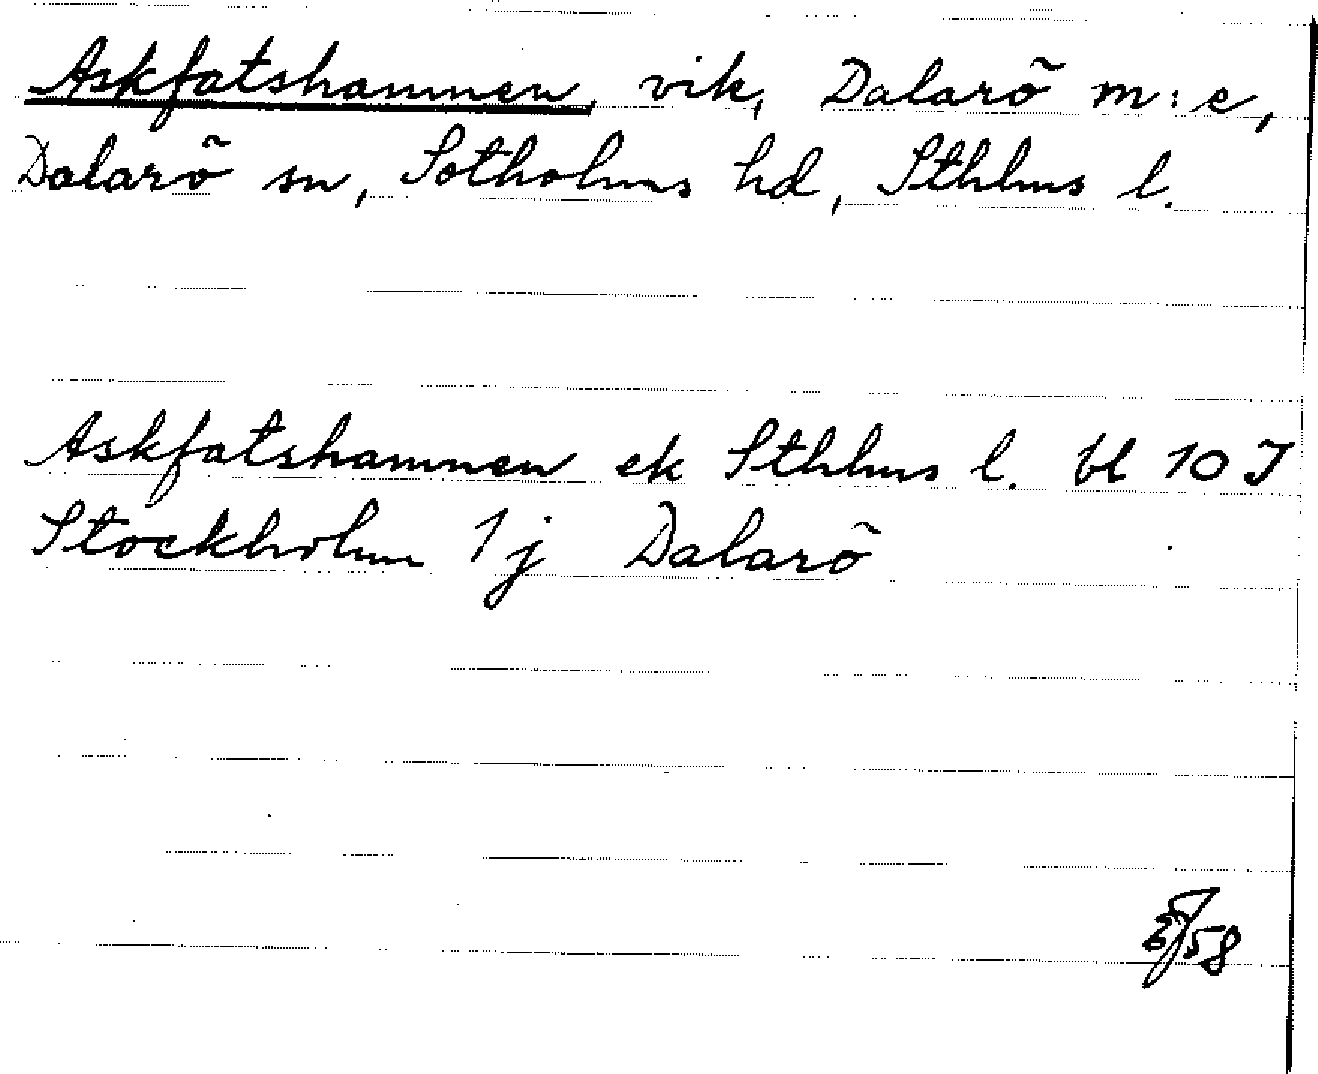 Askfatshamnen, vik, Dalarö m:e,
Dalarö sn, Sotholms hd, Sthlms l.
Askfatshamnen ek Sthlms l. bl 10 J
Stockholm 1j Dalarö
58